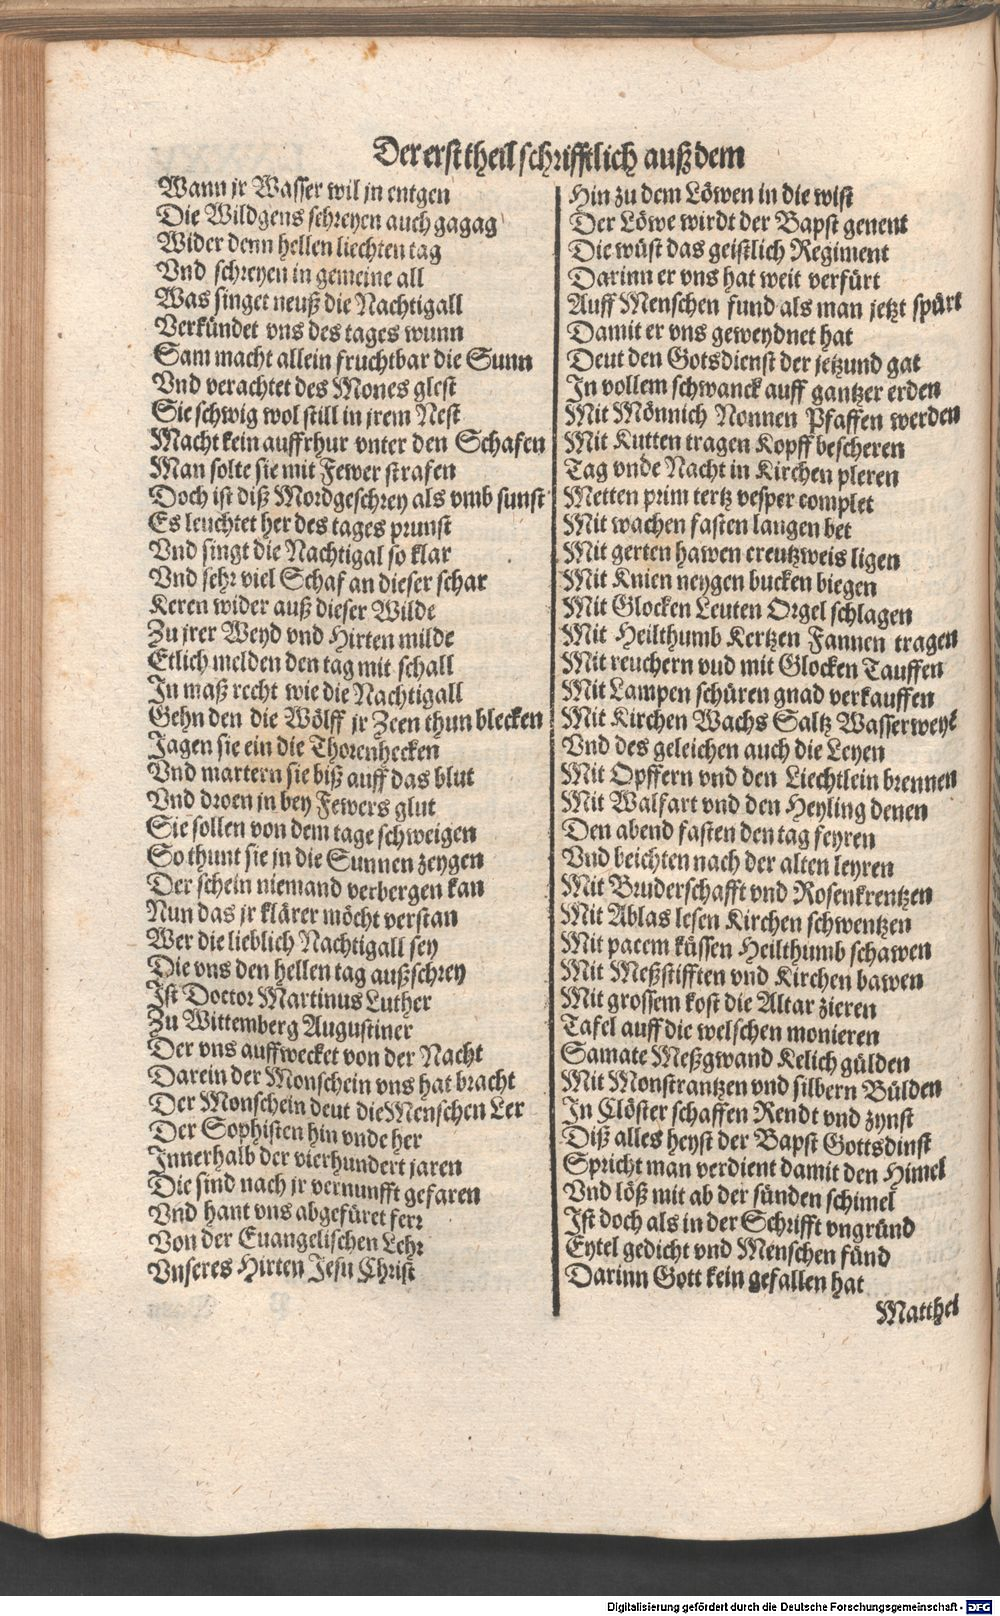 Der erst theil schrifftlich auß dem
Wann jr Wasser wil jn entgen
Die Wildgens schreyen auch gagag
Wider denn hellen liechten tag
Vnd schreyen in gemeine all
Was singet neuß die Nachtigall
Verkündet vns des tages wunn
Sam macht allein fruchtbar die Sunn
Vnd verachtet des Mones glest
Sie schwig wol still in jrem Nest
Macht kein auffrhur vnter den Schafen
Man solte sie mit Fewer strafen
Doch ist diß Mordgeschrey als vmb sunst
Es leuchtet her des tages prunst
Vnd singt die Nachtigal so klar
Vnd sehr viel Schaf an dieser schar
Keren wider auß dieser Wilde
Zu jrer Weyd vnd Hirten milde
Etlich melden den tag mit schall
In maß recht wie die Nachtigall
Gehn den die Wölff jr Zeen thun blecken
Jagen sie ein die Thorenhecken
Vnd martern sie biß auff das blut
Vnd droen jn bey Fewers glut
Sie sollen von dem tage schweigen
So thunt sie jn die Sunnen zeygen
Der schein niemand verbergen kan
Nun das jr klärer möcht verstan
Wer die lieblich Nachtigall sey
Die vns den hellen tag außschrey
Ist Doctor Martinus Luther
Zu Wittemberg Augustiner
Der vns auffwecket von der Nacht
Darein der Monschein vns hat bracht
Der Monschein deut die Menschen Ler
Der Sophisten hin vnde her
Innerhalb der vierhundert jaren
Die sind nach jr vernunfft gefaren
Vnd hant vns abgefüret ferr
Von der Euangelischen Lehr
Vnseres Hirten Jesu Christ
Hin zu dem Löwen in die wist
Der Löwe wirdt der Bapst genent
Die wüst das geistlich Regiment
Darinn er vns hat weit verfürt
Auff Menschen fund als man jetzt spürt
Damit er vns geweydnet hat
Deut den Gotsdienst der jetzund gat
In vollem schwanck auff gantzer erden
Mit Mönnich Nonnen Pfaffen werden
Mit Kutten tragen Kopff bescheren
Tag vnde Nacht in Kirchen pleren
Metten prim tertz vesper complet
Mit wachen fasten langen bet
Mit gerten hawen creutzweis ligen
Mit Knien neygen bucken biegen
Mit Glocken Leuten Orgel schlagen
Mit Heilthumb Kertzen Fannen tragen
Mit reuchern vnd mit Glocken Tauffen
Mit Lampen schüren gnad verkauffen
Mit Kirchen Wachs Saltz Wasser weyē
Vnd des geleichen auch die Leyen
Mit Opffern vnd den Liechtlein brennen
Mit Walfart vnd den Heyling denen
Den abend fasten den tag feyren
Vnd beichten nach der alten leyren
Mit Bruderschafft vnd Rosenkrentzen
Mit Ablas lesen Kirchen schwentzen
Mit patem küssen Heilthumb schawen
Mit Meßstifften vnd Kirchen bawen
Mit grossem kost die Altar zieren
Tafel auff die welschen monieren
Samate Meßgwand Kelich gülden
Mit Monstrantzen vnd silbern Bülden
In Clöster schaffen Rendt vnd zynst
Diß alles heyst der Bapst Gottsdinst
Spricht man verdient damit den Himel
Vnd löß mit ab der sünden schimel
Ist doch als in der Schrifft vngründ
Eytel gedicht vnd Menschen fünd
Darinn Gott kein gefallen hat
Matthei
Digitalisierung gefördert durch die Deutsche Forschungsgemeinschaft - DFG